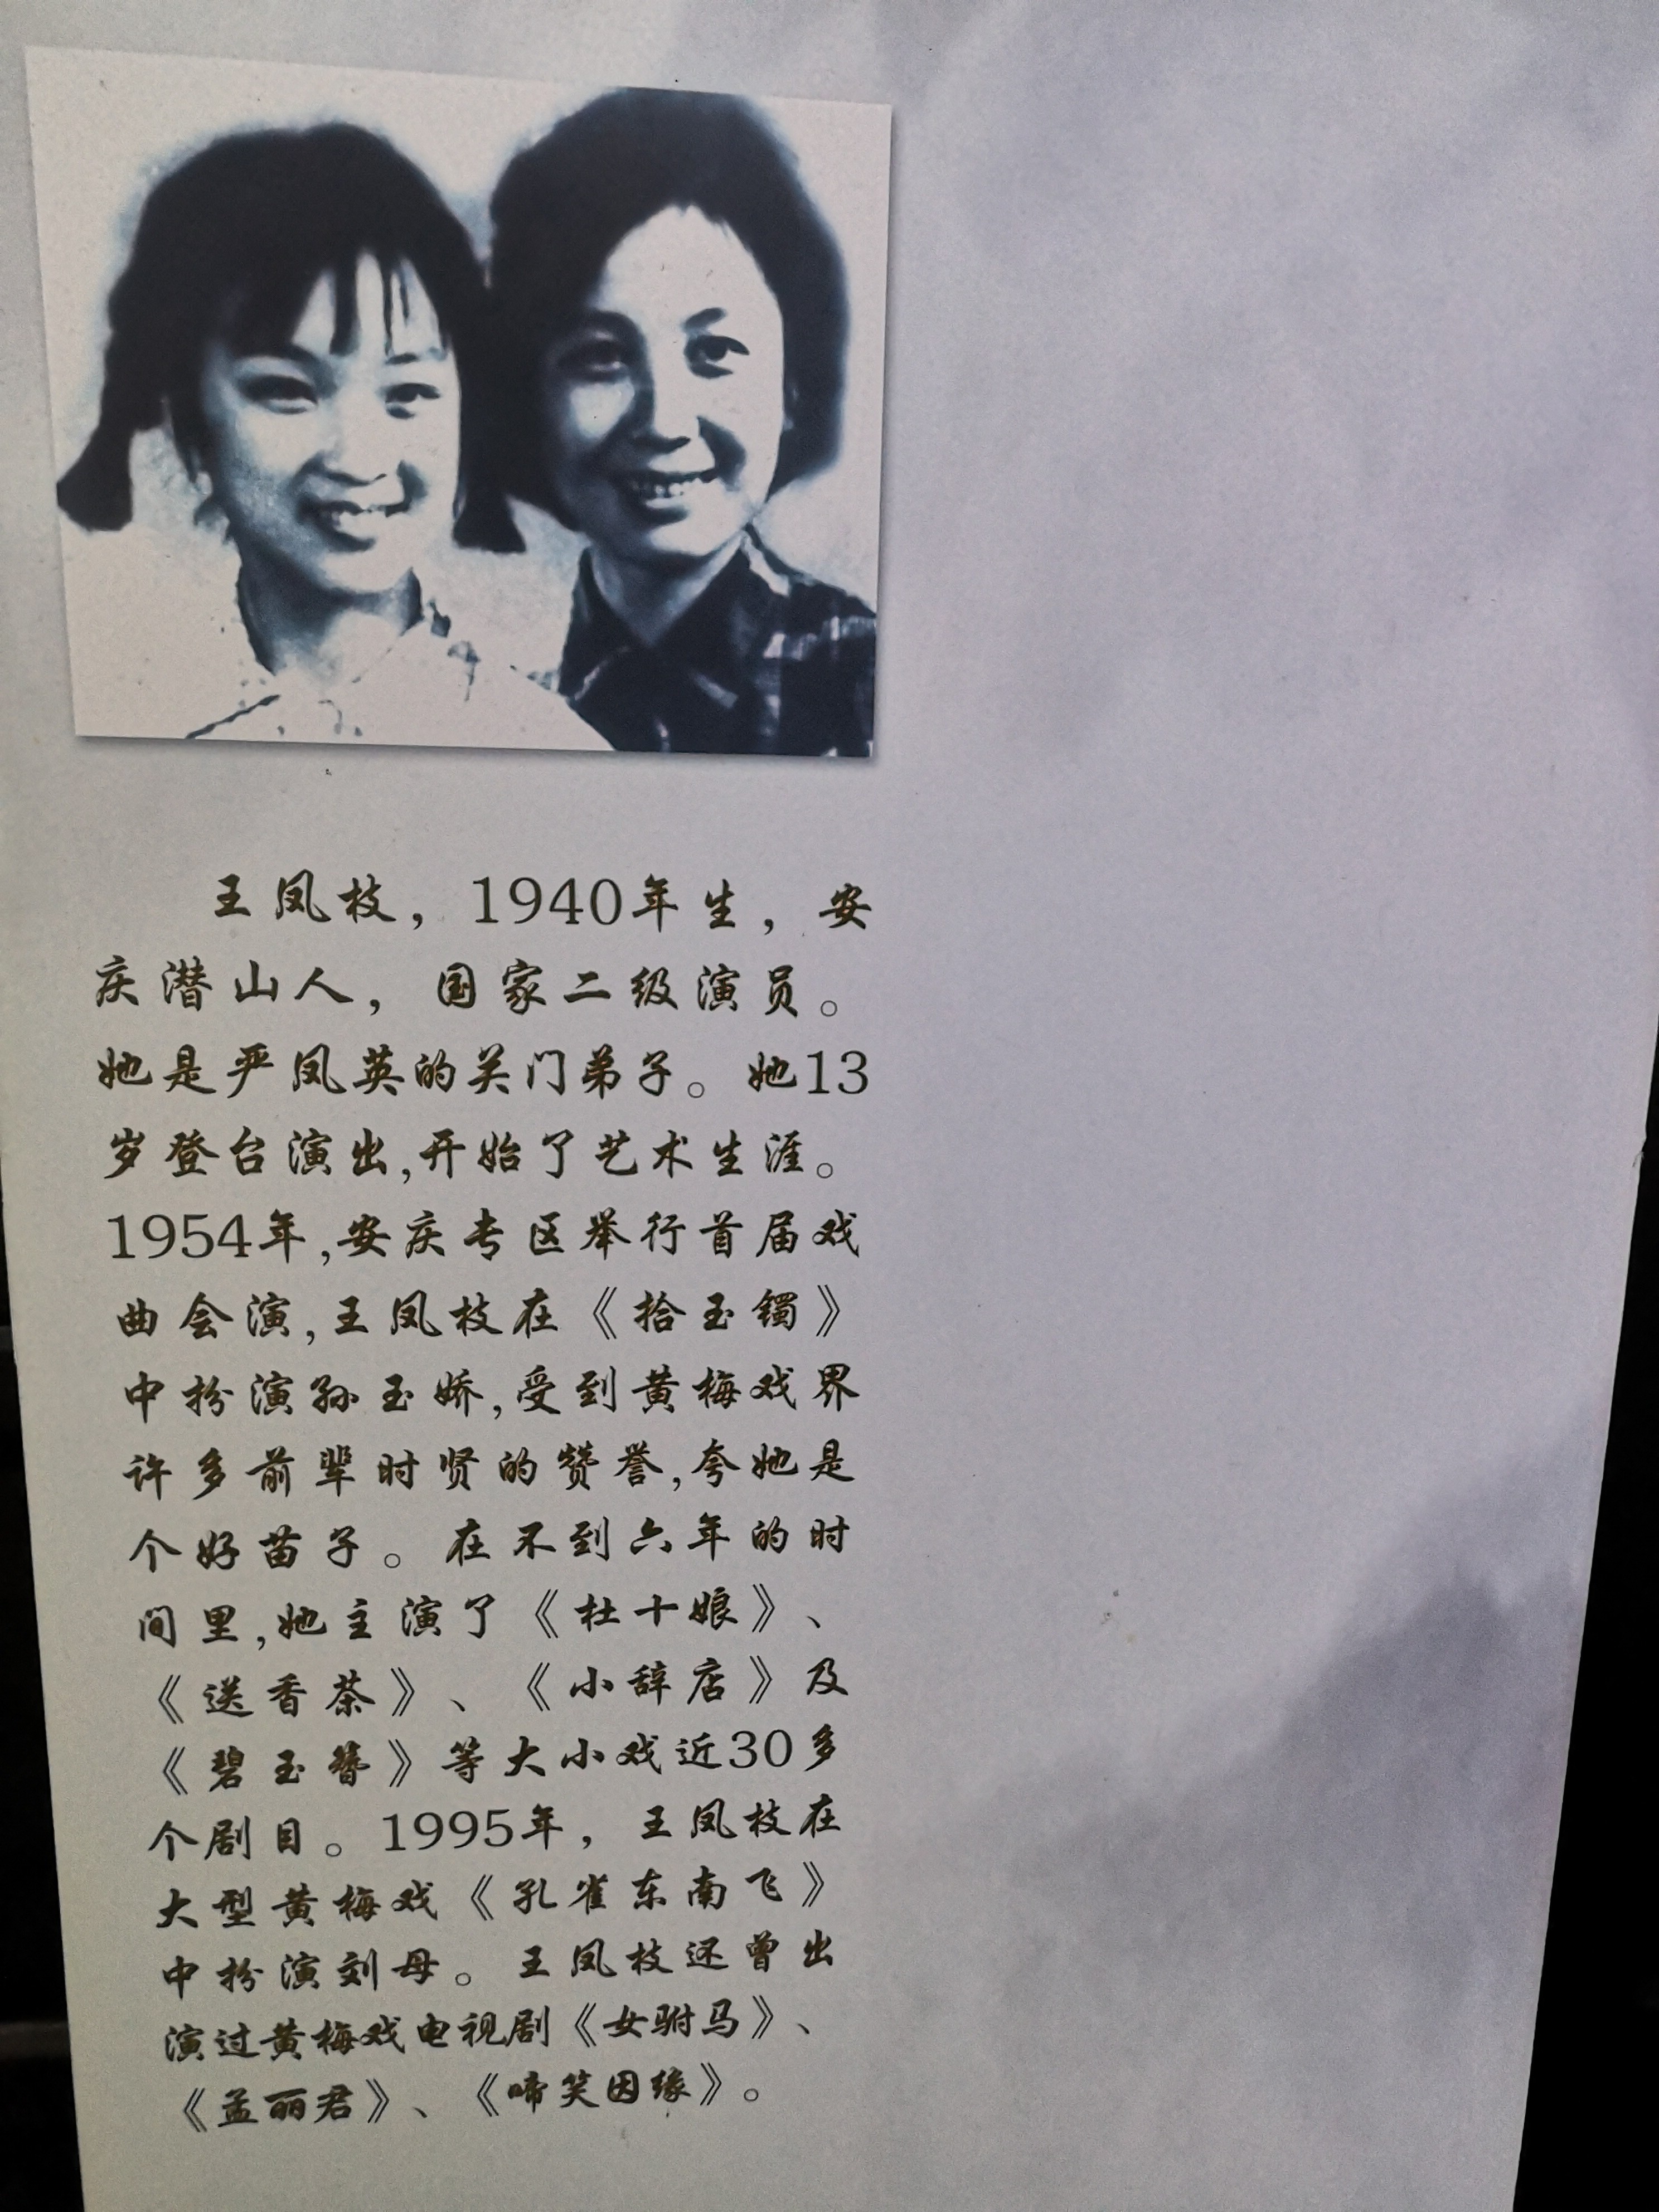 王凤枝，1940年生，安
庆潜山人，国家二级演员。
她是严凤英的关门弟子。她13
岁登台演出,开始了艺术生涯。
1954年,安庆专区举行首届戏
曲会演,王凤枝在《拾玉镯》
中扮演孙玉娇,受到黄梅戏界
许多前辈时贤的赞誉,夸她是
个好苗子。在不到六年的时
间里,她主演了《杜十娘》、
《送香茶》、《小辞店》及
《碧玉簪》等大小戏近30多
个剧目。1995年，王凤枝在
大型黄梅戏《孔雀东南飞》
中扮演刘母。王凤枝还曾出
演过黄梅戏电视剧《女驸马》、
《孟丽君》、《啼笑因缘》。